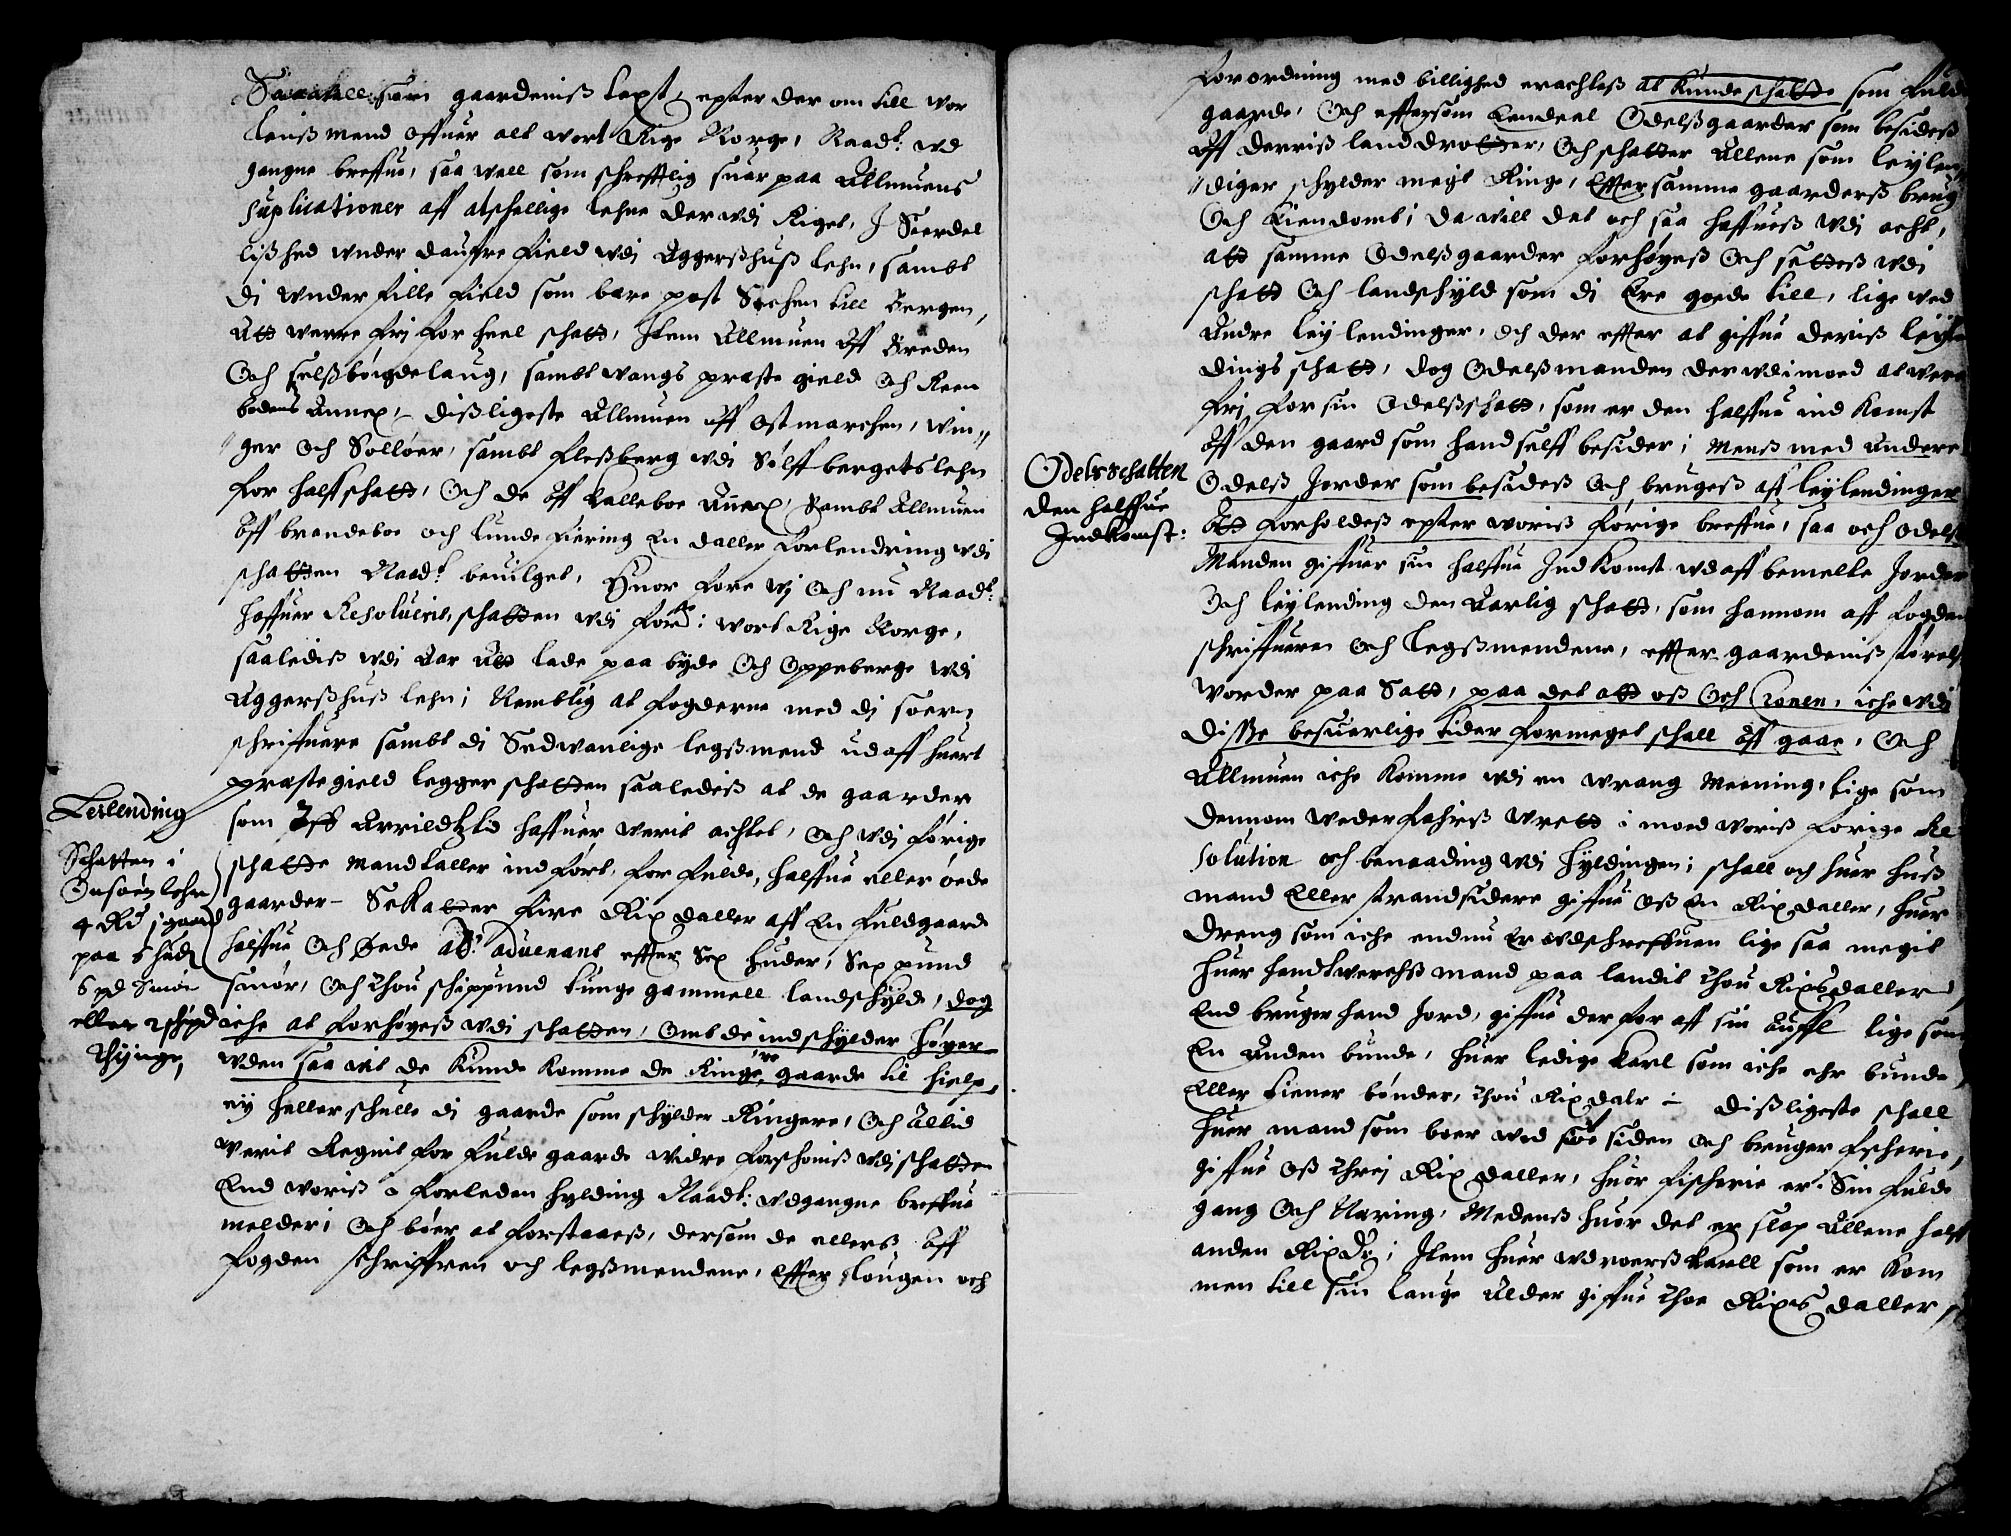 Saauell som gaardeniß taxt, epter der om till wor
lenßmend offuer alt wort Rige Norge, Naadt: wd
gangne breffue, saa well som schrefftlig suar paa Allmuens
Suplicationer aff atschellige lehne der wdj Riget, J Særdel
lißhed wnder daufre field wdj Aggerßhuß lehn, sambt
di wnder fille field som bære post Sechen till Bergen,
Att werre frj for heel schatt, Item Allmuen Aff Breden
Och selßböigdelaug, sambt wangs præste gield Och Reen
bodens Annex, dißligeste Allmuen aff Ostmarchen, win-
ger Och Solløer, sambt fleßberg wdj Sølffbergets lehn
for halff schatt, Och de Aff kalleboe Annex, Sambt Allmuen
Aff brandeboe och lunde fiering En daller forlendring wdj
schatten Naadt: beuilget, Huor fore wj Och nu Naadt:
haffuer Resoluerit, schatten wdj forde: wort Rige Norge,
saaledis wdj Aar Att lade paa byde Och Oppeberge wdj
Aggerßhuß lehn; Nemblig at fogderne med dj soern
schriffuere sambt di Sedwanlige legßmend udaff huert
præstegield legger schatten saaledeß at de gaarder
som Aff Arrildtztid haffuer werit achtet, och wdj forige
schatte Mandtaller indført, for fulde, halffue eller øede
gaarder – Sckatter fire Rix daller aff En fuldgaard
halffue Och Øede ad: aduenant effter Sex huder, Sex pund
smør, Och thou schippund tunge gammell landschyld, dog
iche at forhøyeß wdj schatten, omb de ind schylder høyer
wden saa wit de kunde komme de Ringere gaarde til hielp,
ey heller schulle di gaarde som schylder Ringere, Och Altid
werit Regnit for fulde gaarde widre forschoniß wdj schatten
End woriß i forleden hylding Naadt: wdgangne breffue
melder; Och bør at forstaaeß, dersom de ellerß Aff
fogden schriffren och legßmendene, effter slougen och
Leilending
Schatten i
Onsøen lehn
4 Rd j gaard
paa 6 hud
6 pd Smør
eller 2 schipd
thynge,
forordning med billighed erachteß at kunde schatte som fuld
gaarde, Och effersom Eendeel Odelßgaarder som besideß
Aff derriß landdrotter, Och schatter Allene som leylen
diger schylder megit Ringe, Effter samme gaarderß brug
Och Eiendomb; da will det och saa haffueß wdj acht,
att samme Odelßgaarder forhøyeß Och setteß wdj
schatt Och landschyld som di Ere goede till, lige wed
Andre leylendinger, och der effter at giffue deriß leylen
dings schatt, dog Odelßmanden der wdimoed at were
frj for sin Odelßschatt, som er den halffue ind komst
Aff den gaard som hand selff besider; Menß med Andere
Odelß Jorder som besideß Och brugeß aff leylendinger
Att forholdeß epter woriß forige breffue, saa och Odels
Manden giffuer sin halffue Indkomst wdaff bemelte Jorder
Och leylending den Aarlig schatt, som hannom aff fogden
schriffueren Och legßmendene, effter gaardeniß størels
worder paa Satt, paa det att oß Och Cronen, iche wdj
disße besuerlige tider formeget schall Aff gaae, Och
Allmuen iche komme wdj en wrang Meening, lige som
dennom wederfahrß wrett i moed woriß forige Re
solution och benaading wdj hyldingen; schall och huer huß
mand Eller strandsidere giffue oß En Rix daller, huer
dreng som iche endnu Er wdschreffuen lige saa megit
huer handtwerchß mand paa landit thou Rixs daller
End bruger hand Jord, giffue der for aff sin Auffl lige som
En Anden bunde, huer ledige karl som iche ehr bunde
Eller tiener bønder, thou Rix dalr – dißligeste schall
huer mand som boer wed søe siden och bruger fscherie,
giffue oß threj Rix daller, huor fischerie er Sin fulde
gang Och Næring, Medenß huor det er slap Allene halff
anden Rixdlr; Item huer wdroerß karll som er kom
men till sin lauge Alder giffue thoe Rixs daller
Odelsschatten
den halffue
Indkomst: